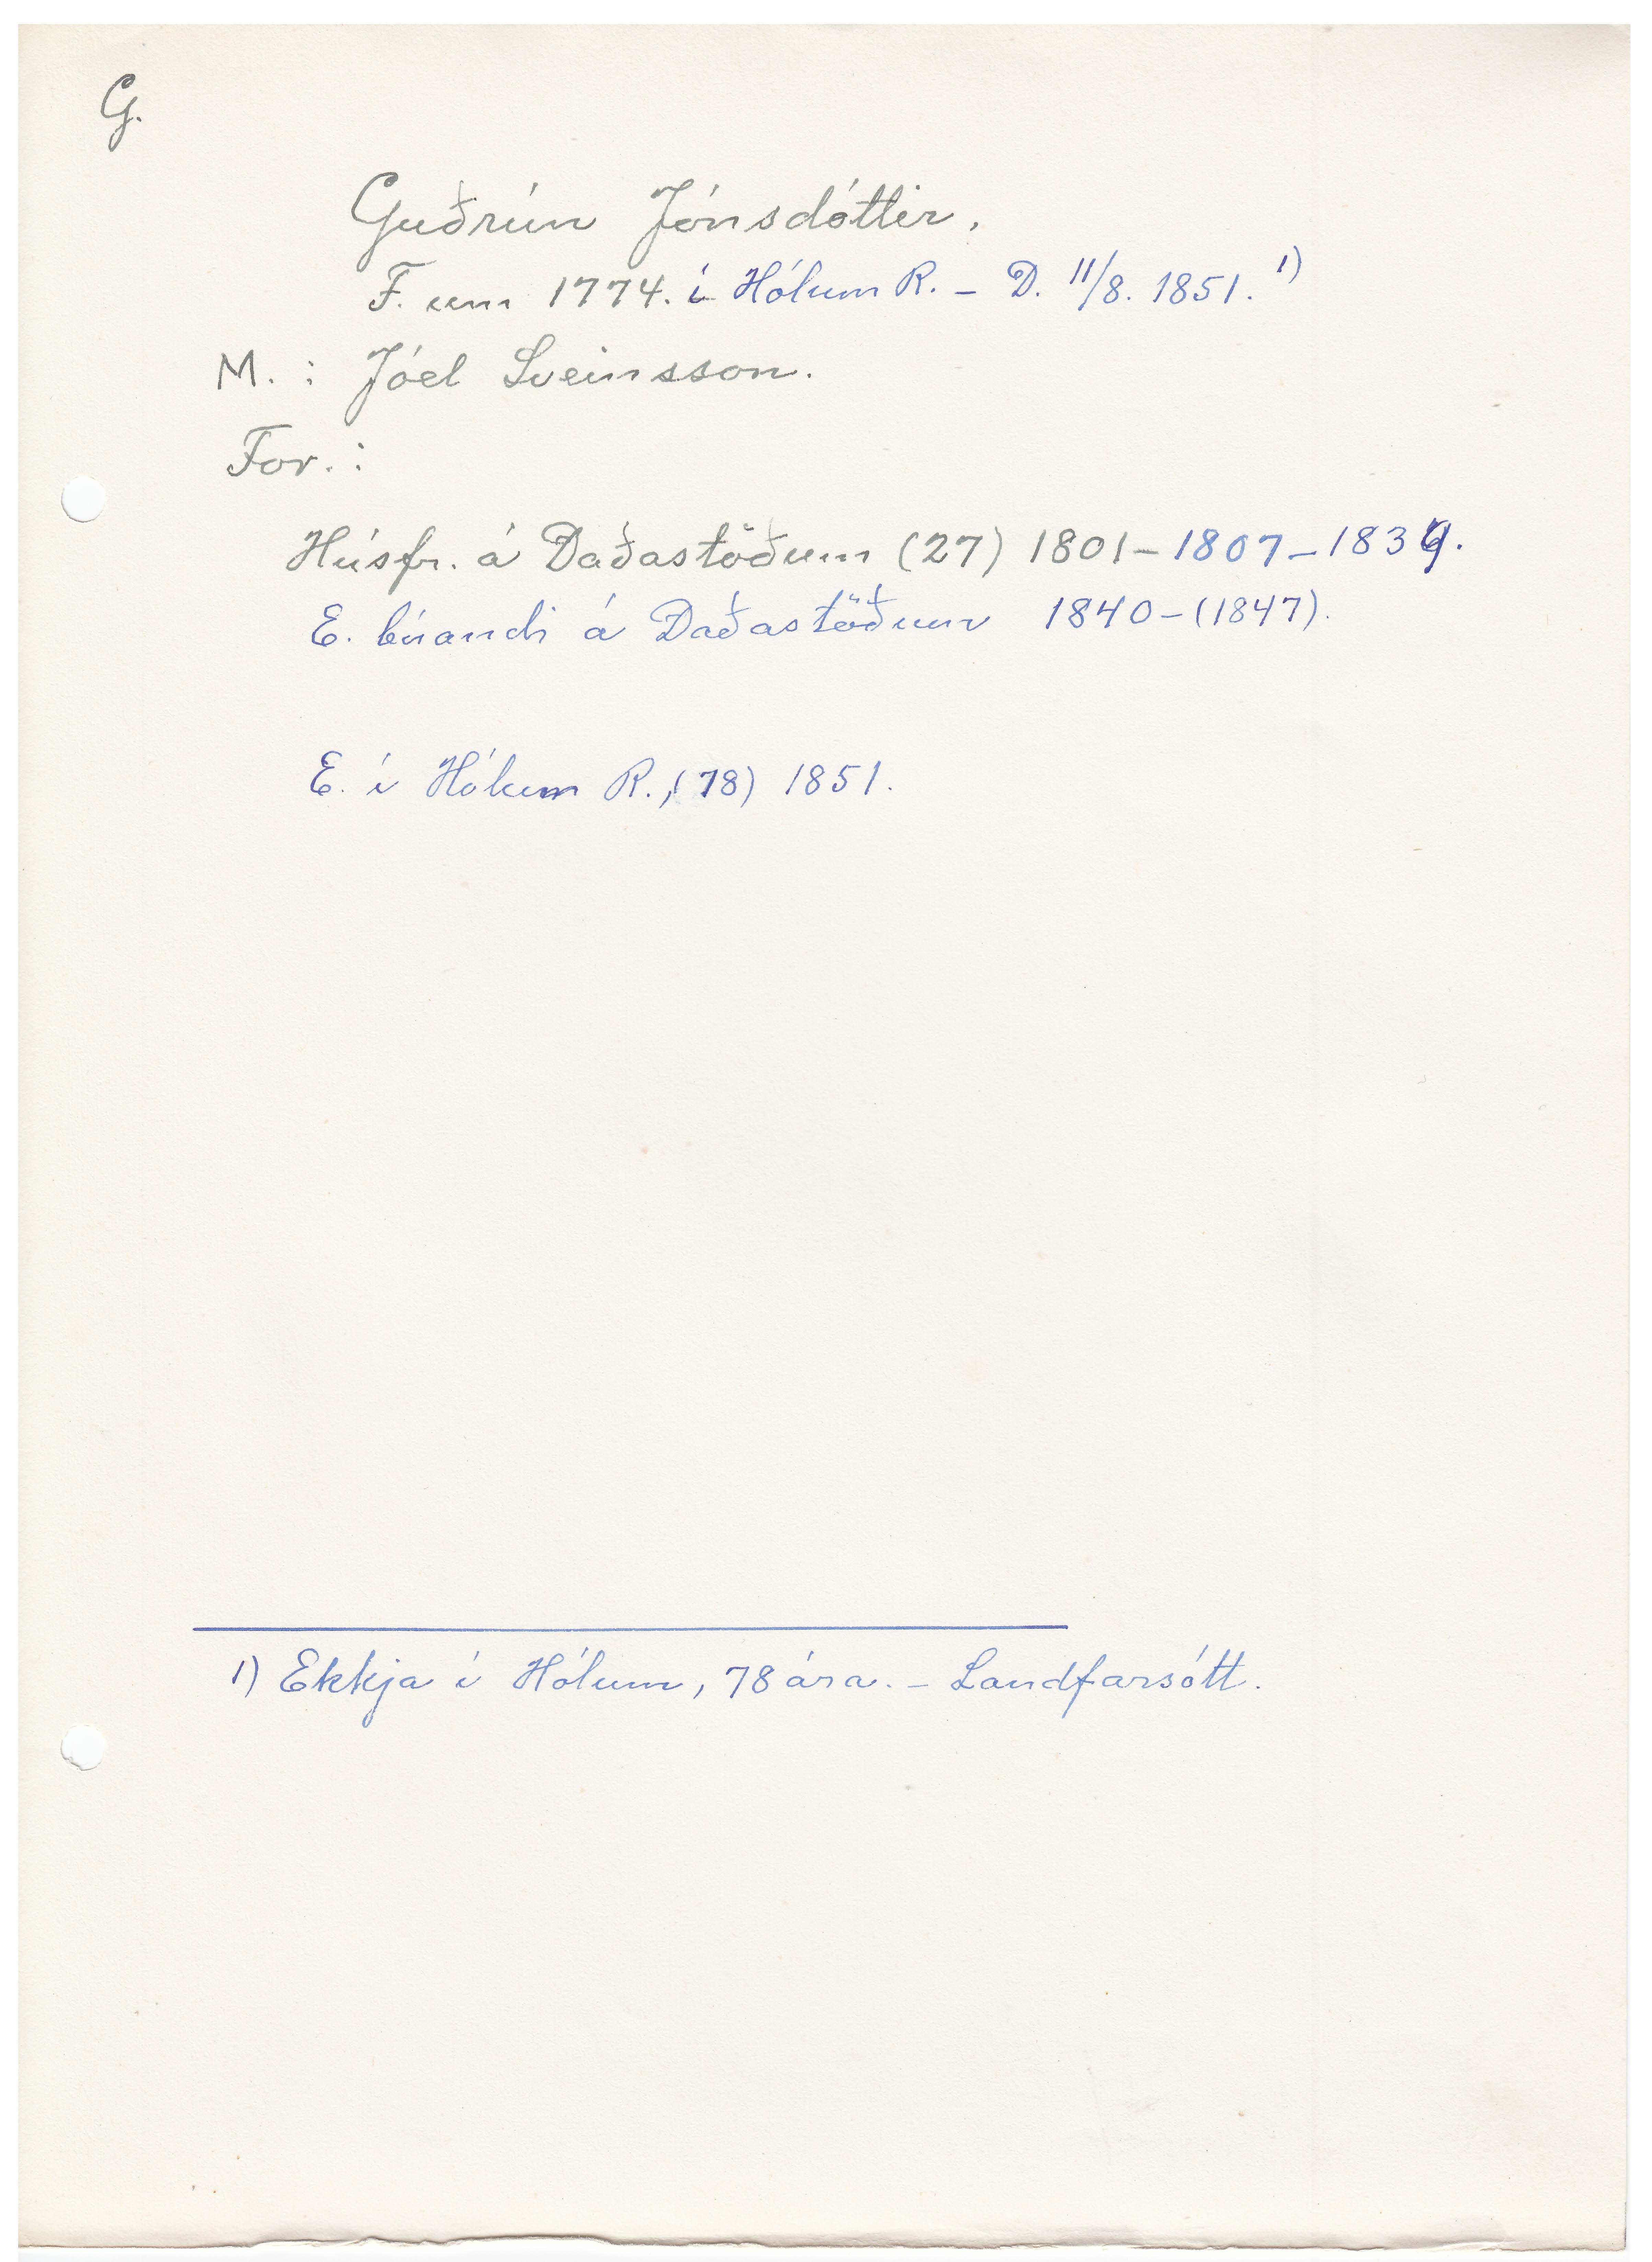 G.
Guðrún Jónsdóttir.
F. um 1774. í Hólum R. – D. 11/8. 1851. 1)
M. : Jóel Sveinsson.
For. :
Húsfr. á Daðastöðum (27) 1801–1807–1839.
E. búandi á Daðastöðum 1840–(1847).
E. í Hólum R., (78) 1851.
1) Ekkja í Hólum, 78 ára. – Landfarsótt.